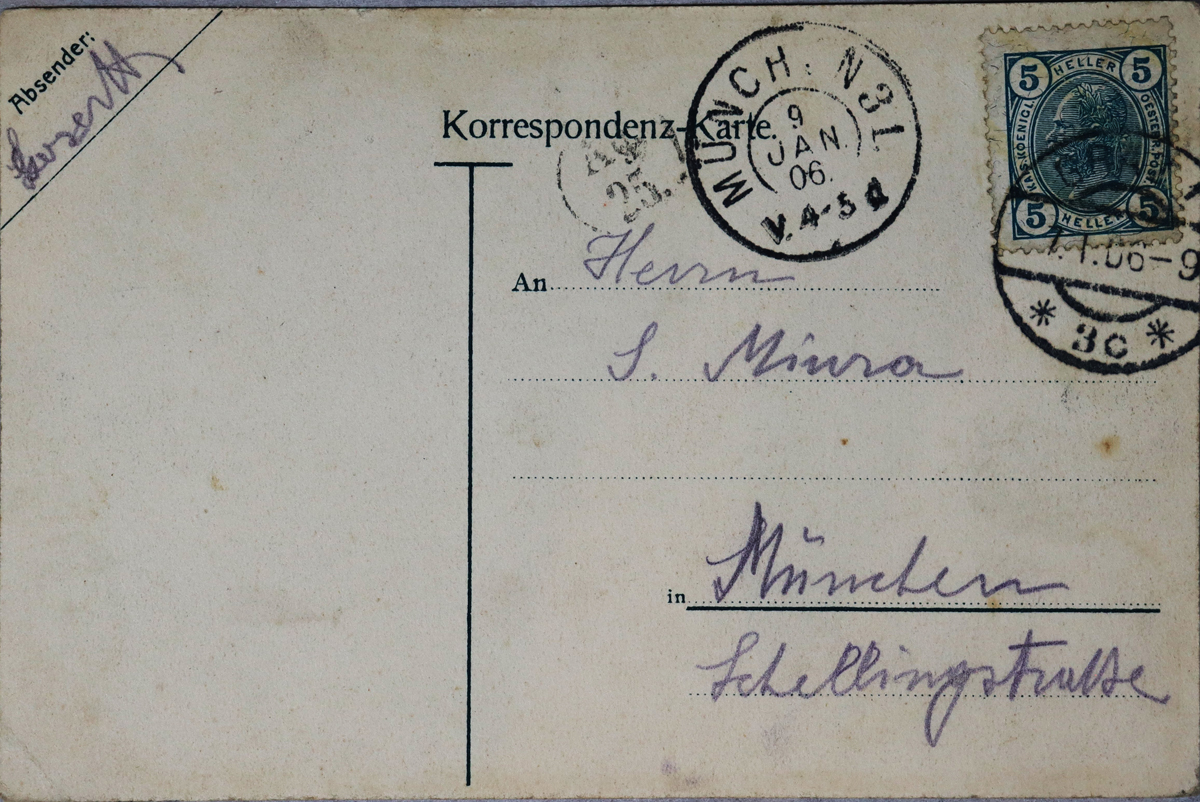 Absender:
Korrespondenz-Karte.
MÜNCH. N31
9
JAN.
06.
V. 4-5
25.
5 HELLER 5
KAIS. KOENIGL. OESTERR. POST
5 HELLER 5
7.1.06-9
* 3c *
An Herrn
S. Miura
in München
Schellingstraße